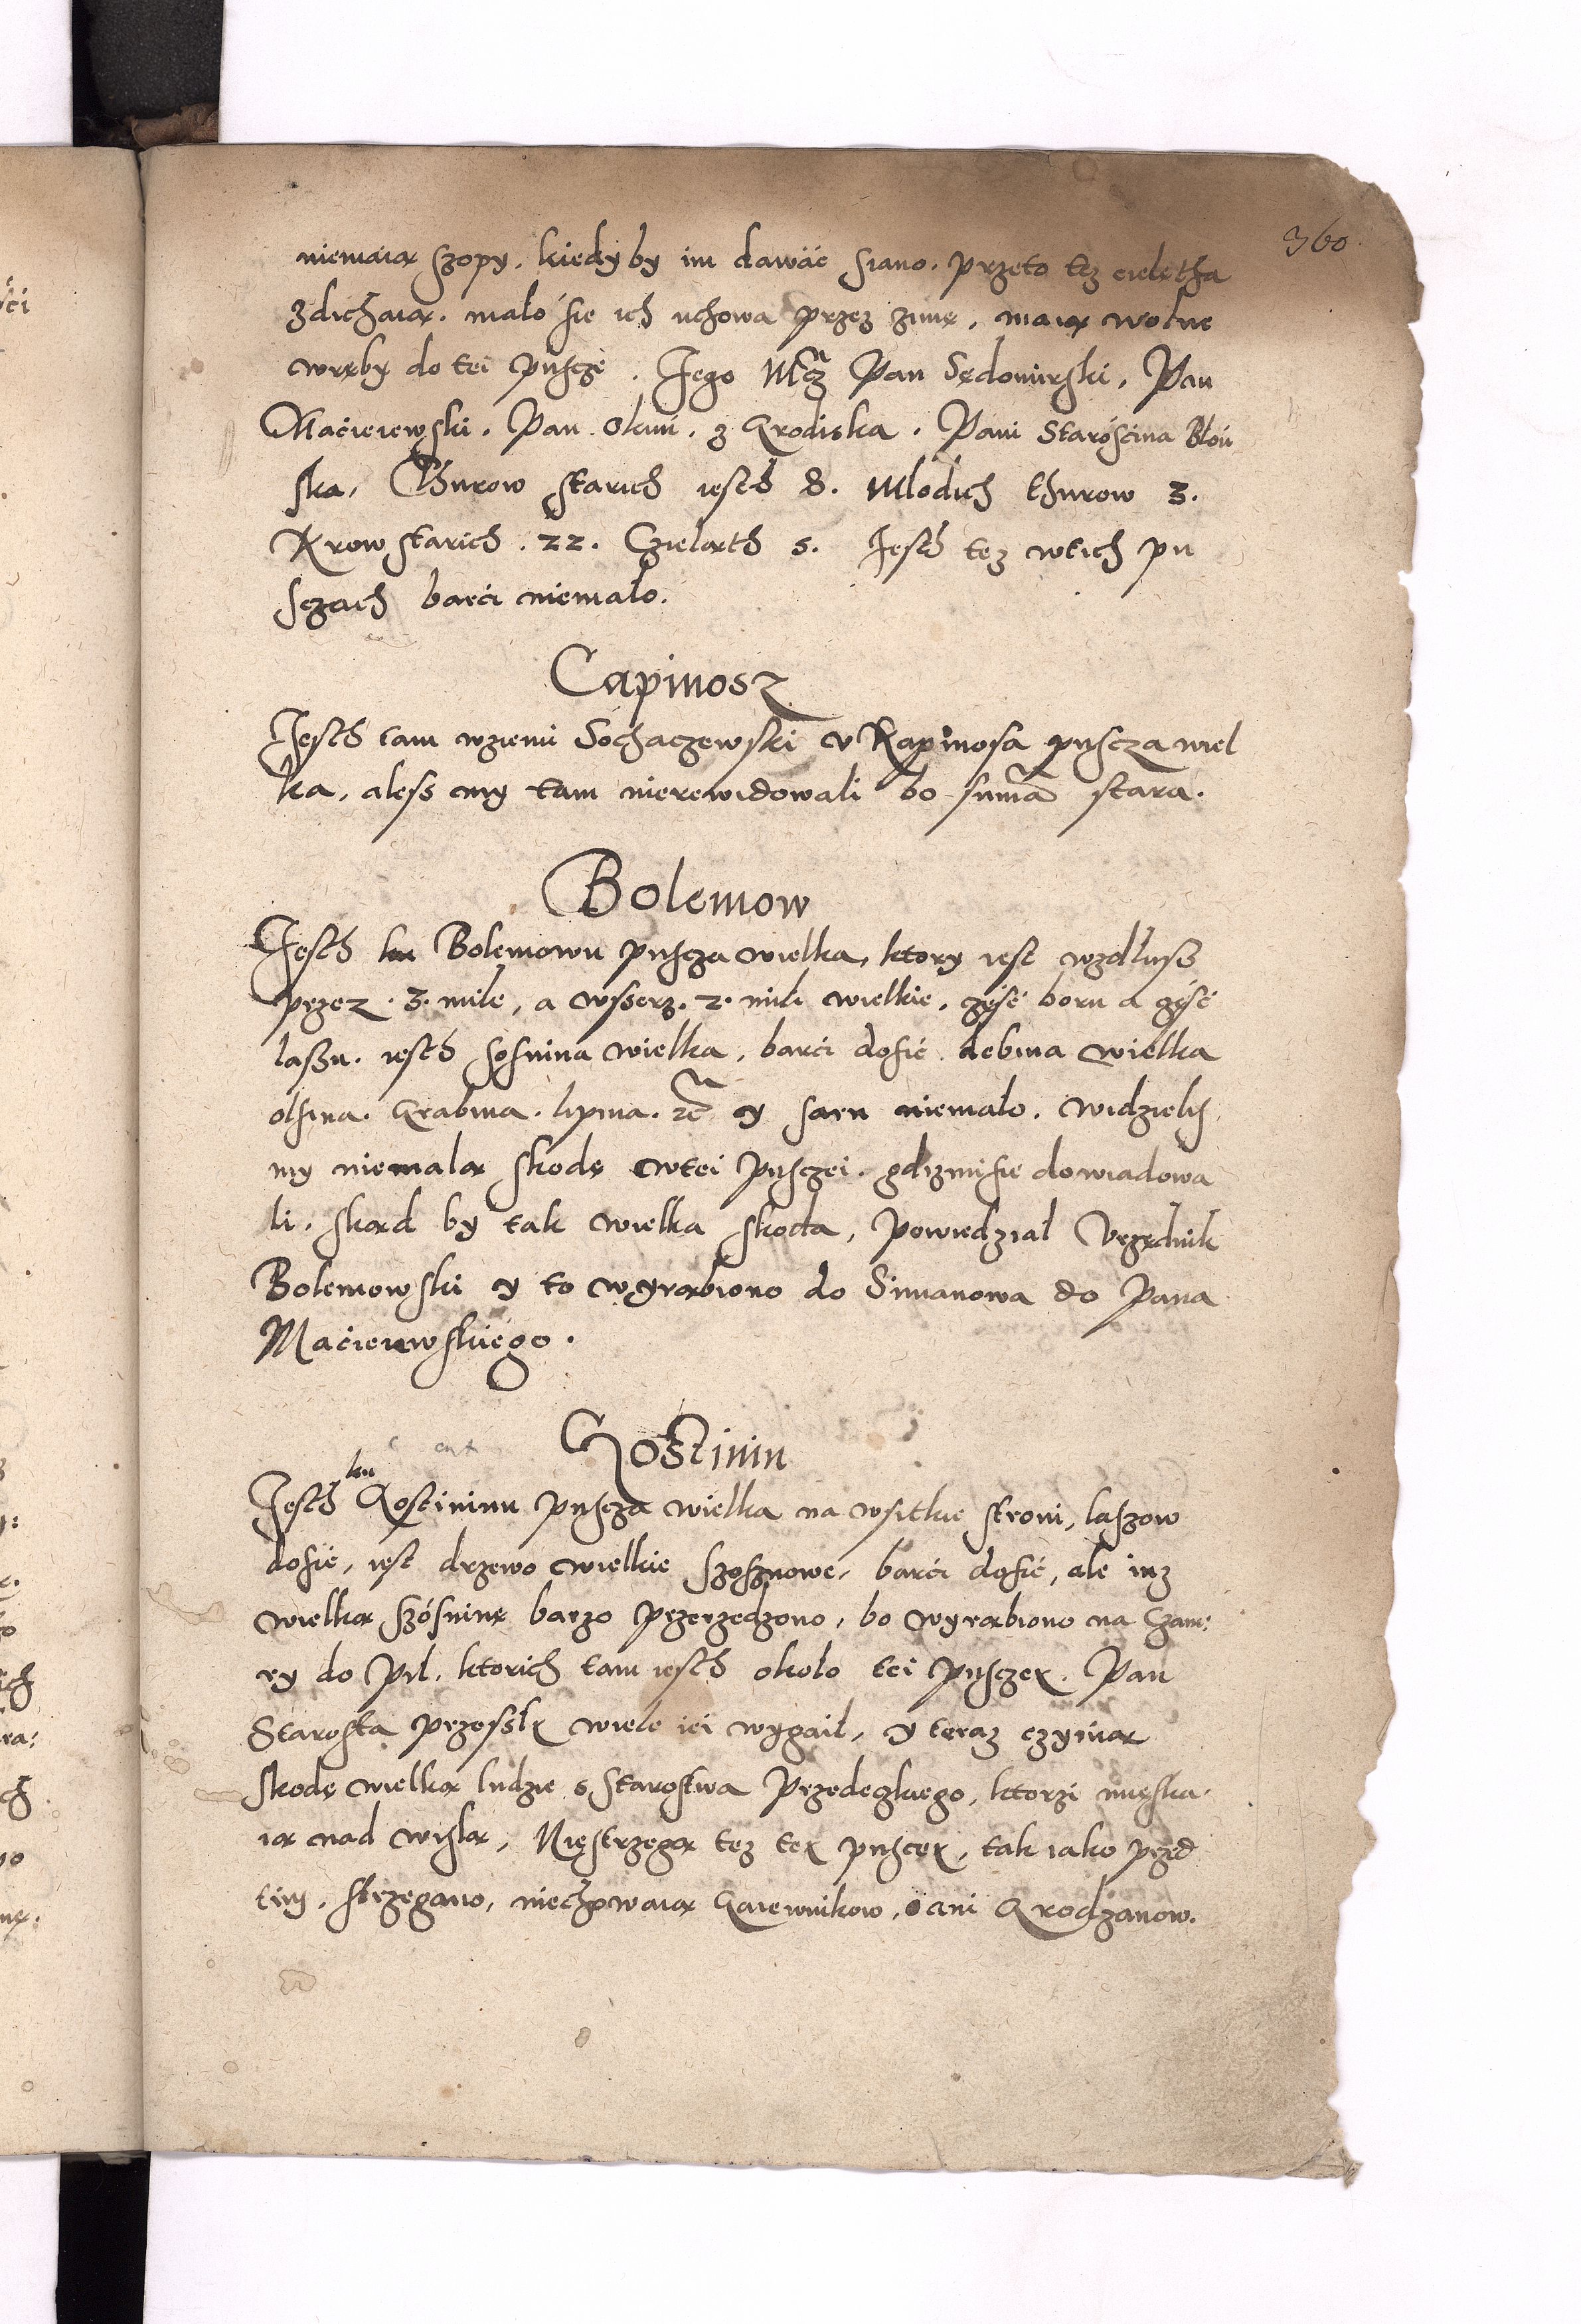 360
niemaią szopy. kiedyby im dawać siano. przeto tez cielętha
zdichaią. mało sie ich uchowa przez zimę. maią wolne
wręby do tei puscze. Jego Mcz Pan Sędomirski. Pan
Macieiewski. Pan Okuń. z Grodiska. Pani Starościna Błoń
ska. Thurow starich iesth 8. Mlodich thurow 3.
Krow starich. 22. Czieląth 5. Jesth tez wtich pu
sczach barci niemało.
Capinosz
Jesth tam wziemi Sochaczewski v Kapinosa puscza wiel
ka, aless my tam nierewidowali bo suma stara.
Bolemow
Jesth ku Bolemowu puscza wielka, ktory iest wzdłusz
przez. 3. mile, a wsserz. 2. mili wielkie. częsć boru a częsć
laszu. iesth sosnina wielka. barci dosić. debina wielka
olsina. Grabina. lipina. zc y sarn niemało. widzielis
my niemalą skodę wtei pusczei. gdizmisie dowiadowa
li. skąd by tak wielka skoda, powiedział Vrzędnik
Bolemowski y to wyrąbiono do Simanowa do Pana
Macieiewskiego.
Gostinin
Jesth ku Gostininu puscza wielka na wsitkie stroni, laszow
dosić, iest drzewo wielkie szosznowe, barci dosić, ale iuz
wielką szósninę barzo przerzedzono, bo wyrąbiono na Czam:
ry do Pił. ktorich tam iesth około tei pusczei. Pan
Starosta przesslÿ wiele iei wygaił, y teraz czynią
skodę wielką ludzie s Starostwa Przedeczkiego, ktorzi mięska
ią nad wislą, Nięstrzegą tez tei puscei, tak iako przed
tim. strzegano, niechowaią Gaiewnikow, ani Grodzanow.